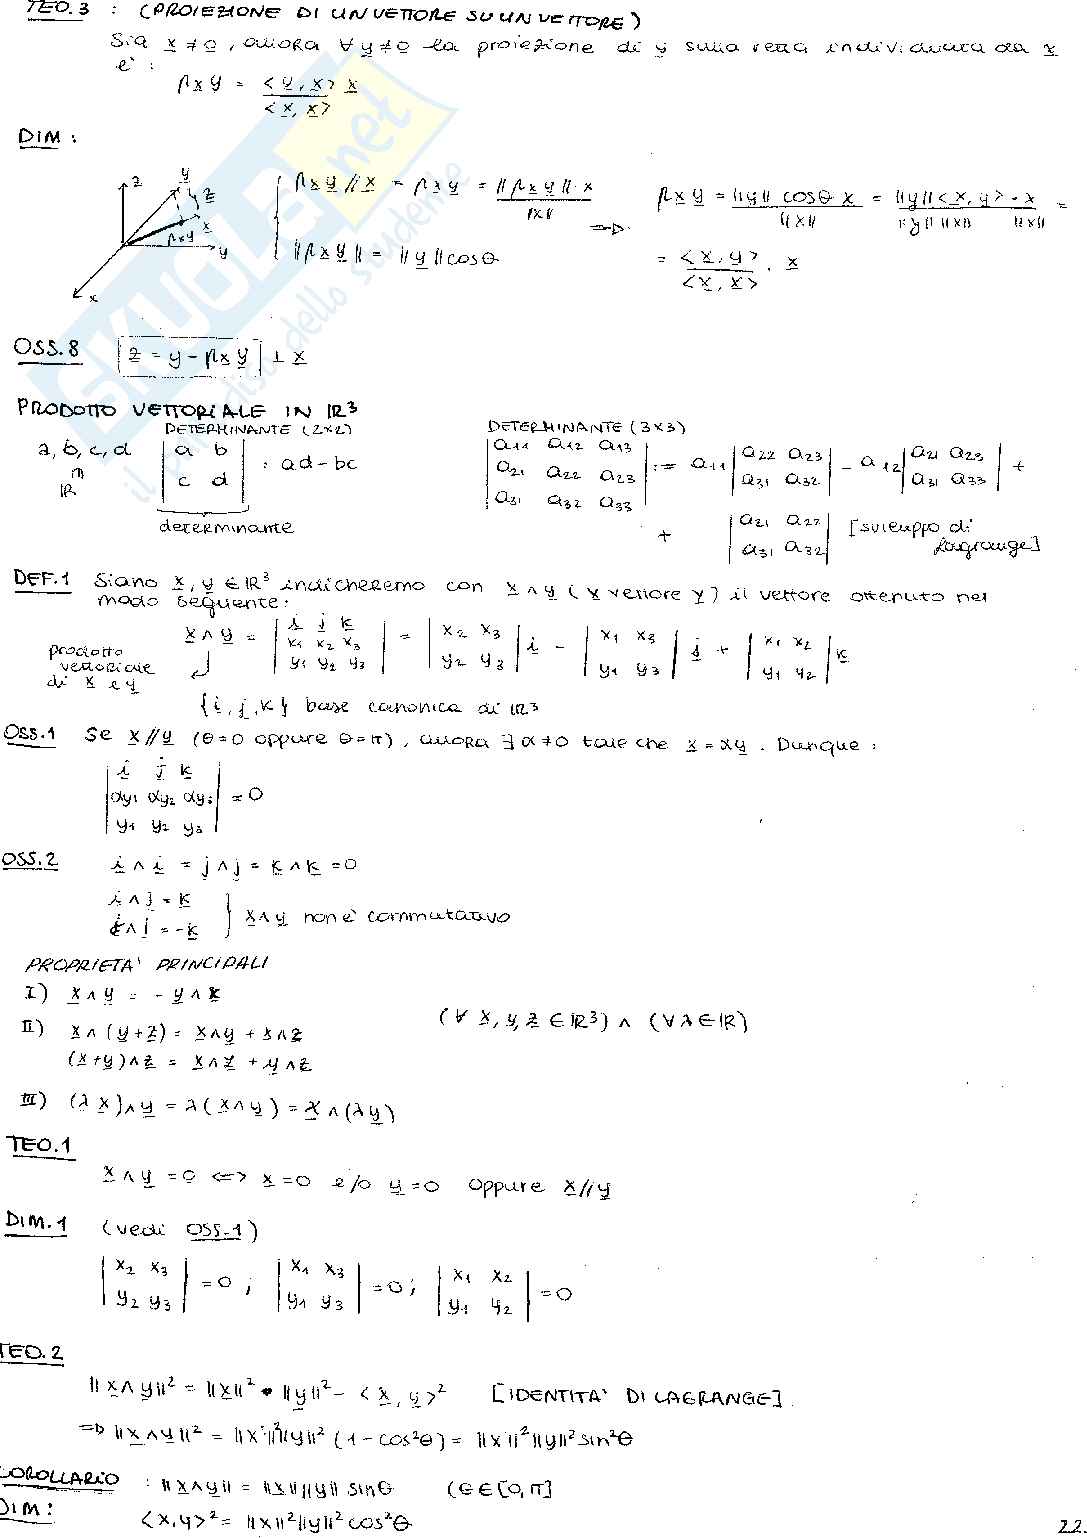 TEO.3 : (PROIEZIONE DI UN VETTORE SU UN VETTORE)
Sia x ≠ 0, allora ∀ y ≠ 0 la proiezione di y sulla retta individuata da x
è :
pxy = <y, x> x
<x, x>
DIM :
z y z x pxy y x
pxy // x = pxy = ||pxy|| · x
||x||
||pxy|| = ||y|| cosθ
=>
pxy = ||y|| cosθ x = ||y|| <x, y> · x =
||x|| ||y|| ||x|| ||x||
= <x, y> · x
<x, x>
OSS.8 [z = y - pxy] ⊥ x
PRODOTTO VETTORIALE IN IR³
DETERMINANTE (2x2)
a, b, c, d | a b | : ad - bc
∈ IR | c d |
determinante
DETERMINANTE (3x3)
| a11 a12 a13 |
| a21 a22 a23 | := a11 | a22 a23 | - a12 | a21 a23 | +
| a31 a32 a33 | | a31 a32 | | a31 a33 |
+ | a21 a22 | [sviluppo di
| a31 a32 | Lagrange]
DEF.1 Siano x, y ∈ IR³ indicheremo con x ∧ y (x vettore y) il vettore ottenuto nel
modo seguente:
x ∧ y = | i j k | = | x2 x3 | i - | x1 x3 | j + | x1 x2 | k
| x1 x2 x3 | | y2 y3 | | y1 y3 | | y1 y2 |
| y1 y2 y3 |
prodotto
vettoriale
di x e y
{i, j, k} base canonica di IR³
OSS.1 Se x // y (θ=0 oppure θ=π), allora ∃ α ≠ 0 tale che x = αy. Dunque :
| i j k |
| αy1 αy2 αy3 | = 0
| y1 y2 y3 |
OSS.2 i ∧ i = j ∧ j = k ∧ k = 0
i ∧ j = k
∧ = -k } x ∧ y non è commutativo
PROPRIETA' PRINCIPALI
I) x ∧ y = - y ∧ x
II) x ∧ (y+z) = x ∧ y + x ∧ z (∀ x, y, z ∈ IR³) ∧ (∀ λ ∈ IR)
(x+y) ∧ z = x ∧ z + y ∧ z
III) (λx) ∧ y = λ(x ∧ y) = x ∧ (λy)
TEO.1
x ∧ y = 0 <=> x = 0 e/o y = 0 oppure x // y
DIM.1 (vedi OSS.1)
| x2 x3 | = 0 ; | x1 x3 | = 0 ; | x1 x2 | = 0
| y2 y3 | | y1 y3 | | y1 y2 |
TEO.2
||x ∧ y||² = ||x||² • ||y||² - <x, y>² [IDENTITA' DI LAGRANGE]
=> ||x ∧ y||² = ||x||² ||y||² (1 - cos²θ) = ||x||² ||y||² sin²θ
COROLLARIO : ||x ∧ y|| = ||x|| ||y|| sinθ (θ ∈ [0, π]
DIM : <x, y>² = ||x||² ||y||² cos²θ
22.
SKUOLA.net
il paradiso dello studente